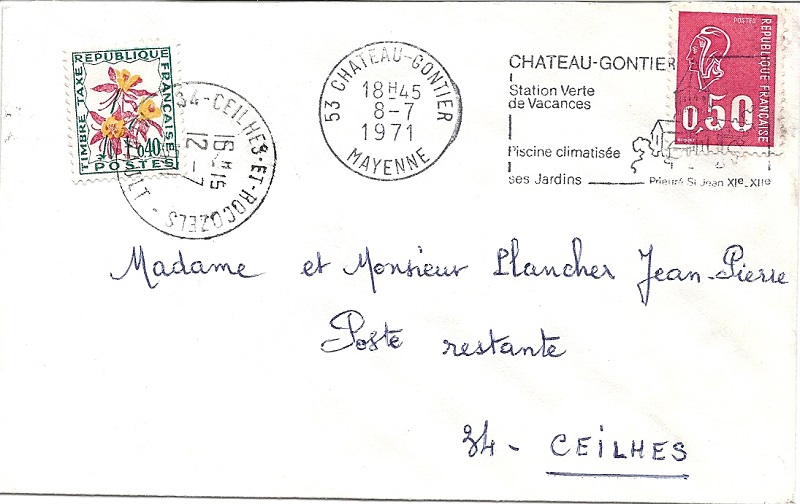 REPUBLIQUE
FRANÇAISE
TIMBRE TAXE
0,40
POSTES
34-CEILHES-ET-ROCOZELS
16H15
12-7
53 CHATEAU-GONTIER
18H45
8-7
1971
MAYENNE
CHATEAU-GONTIER
Station Verte
de Vacances
Piscine climatisée
ses Jardins
Prieuré St Jean XIe-XIIe
POSTES
REPUBLIQUE FRANÇAISE
0,50
Madame et Monsieur Plancher Jean-Pierre
Poste restante
34 - CEILHES